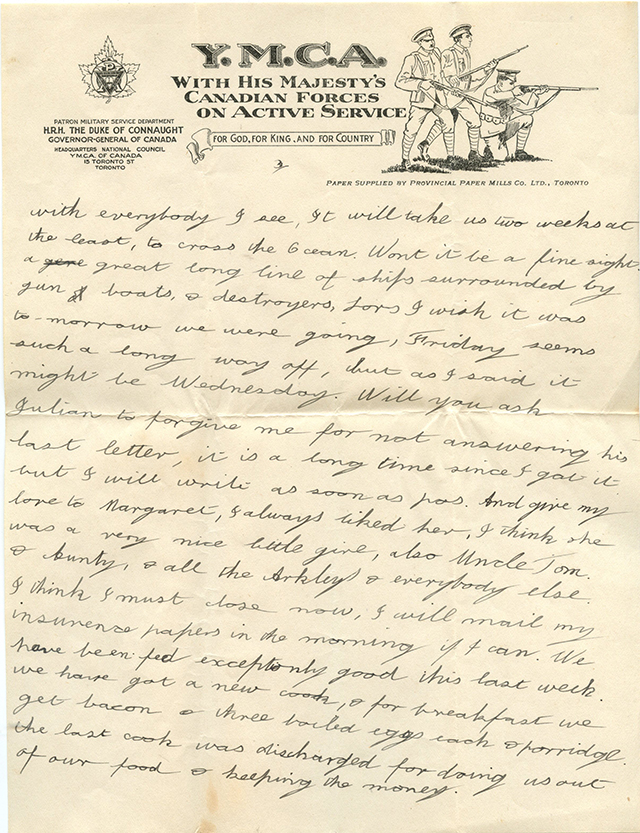 Y.M.C.A.
WITH HIS MAJESTY'S
CANADIAN FORCES
ON ACTIVE SERVICE
FOR GOD, FOR KING, AND FOR COUNTRY
PATRON MILITARY SERVICE DEPARTMENT
H.R.H. THE DUKE OF CONNAUGHT
GOVERNOR-GENERAL OF CANADA
HEADQUARTERS NATIONAL COUNCIL
Y.M.C.A. OF CANADA
15 TORONTO ST
TORONTO
PAPER SUPPLIED BY PROVINCIAL PAPER MILLS CO. LTD., TORONTO
with everybody I see, It will take us two weeks at
the least, to cross the Ocean. Wont it be a fine sight
a great long line of ships surrounded by
gun boats, & destroyers, Lors I wish it was
to-morrow we were going, Friday seems
such a long way off, but as I said it
might be Wednesday. Will you ask
Julian to forgive me for not answering his
last letter, it is a long time since I got it
but I will write as soon as pos. And give my
love to Margaret, I always liked her, I think she
was a very nice little girl, also Uncle Tom.
& Aunty, & all the Arkleys & everybody else.
I think I must close now, I will mail my
insurence papers in the morning if I can. We
have been fed exceptonly good this last week.
we have got a new cook, & for breakfast we
get bacon & three boiled eggs each & porridge.
the last cook was discharged for doing us out
of our food & keeping the money.